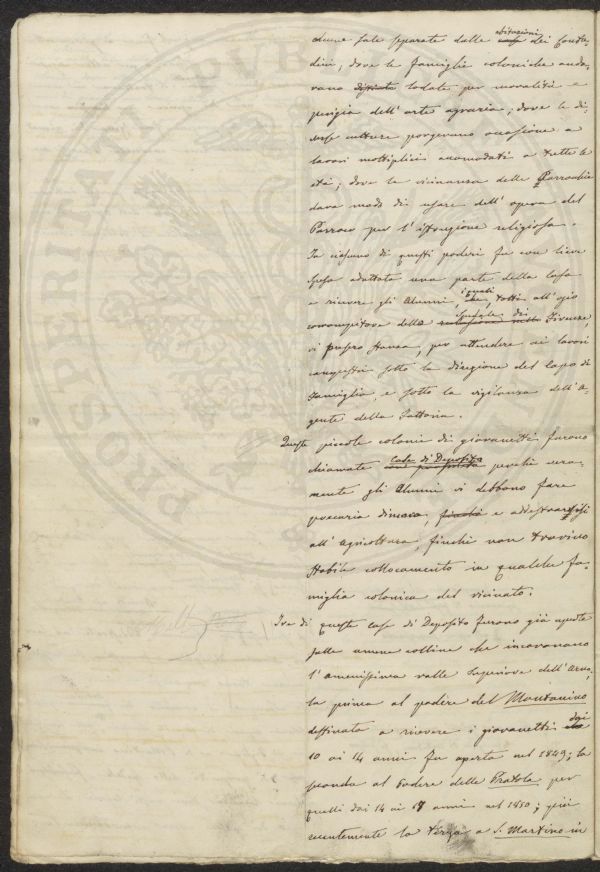 alcune sale separate dalle abitazioni dei Conta-
dini, dove le famiglie coloniche anda-
vano distinte lodate per moralità e
perizia dell'arte agraria; dove le di-
verse culture porgevano occasione a
lavori moltiplici accomodati a tutte le
età; dove la vicinanza delle Parrocchie
dava modo di usare dell'opera del
Parroco per l'istruzione religiosa.
In ciascuno di questi poderi fu con lieve
spesa adattata una parte della Casa
a ricevere gli Alunni, i quali che, tolti all'ozio
corrompitore dello Spedale di relazione nello Firenze,
vi presero stanza, per attendere ai lavori
campestri sotto la direzione del Capo di
Famiglia, e sotto la vigilanza dell'A-
gente della Fattoria.
Queste piccole colonie di giovanetti furono
chiamate Case di Deposito perchè vera-
mente gli Alunni vi debbono fare
precaria dimora, finchè e addestrarsi
all'agricoltura, finchè non trovino
stabile collocamento in qualche fa-
miglia colonica del vicinato.
Tre di queste case di Deposito furono già aperte
sulle amene colline che incoronano
l'amenissima valle Superiore dell'Arno,
la prima al podere del Montanino
destinata a ricevere i giovanetti dai
10 ai 14 anni fu aperta nel 1849; la
seconda al Podere delle Pratola per
quelli dai 14 ai 18 anni nel 1850; più
recentemente la terza a S. Martino in
PROSPERITATI PVB